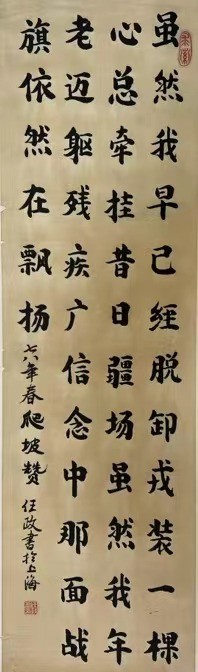 虽然我早已经脱卸戎装一棵
心总牵挂昔日疆场虽然我年
老迈躯残疾广信念中那面战
旗依然在飘扬
七八年春爬坡赞 任政书于上海